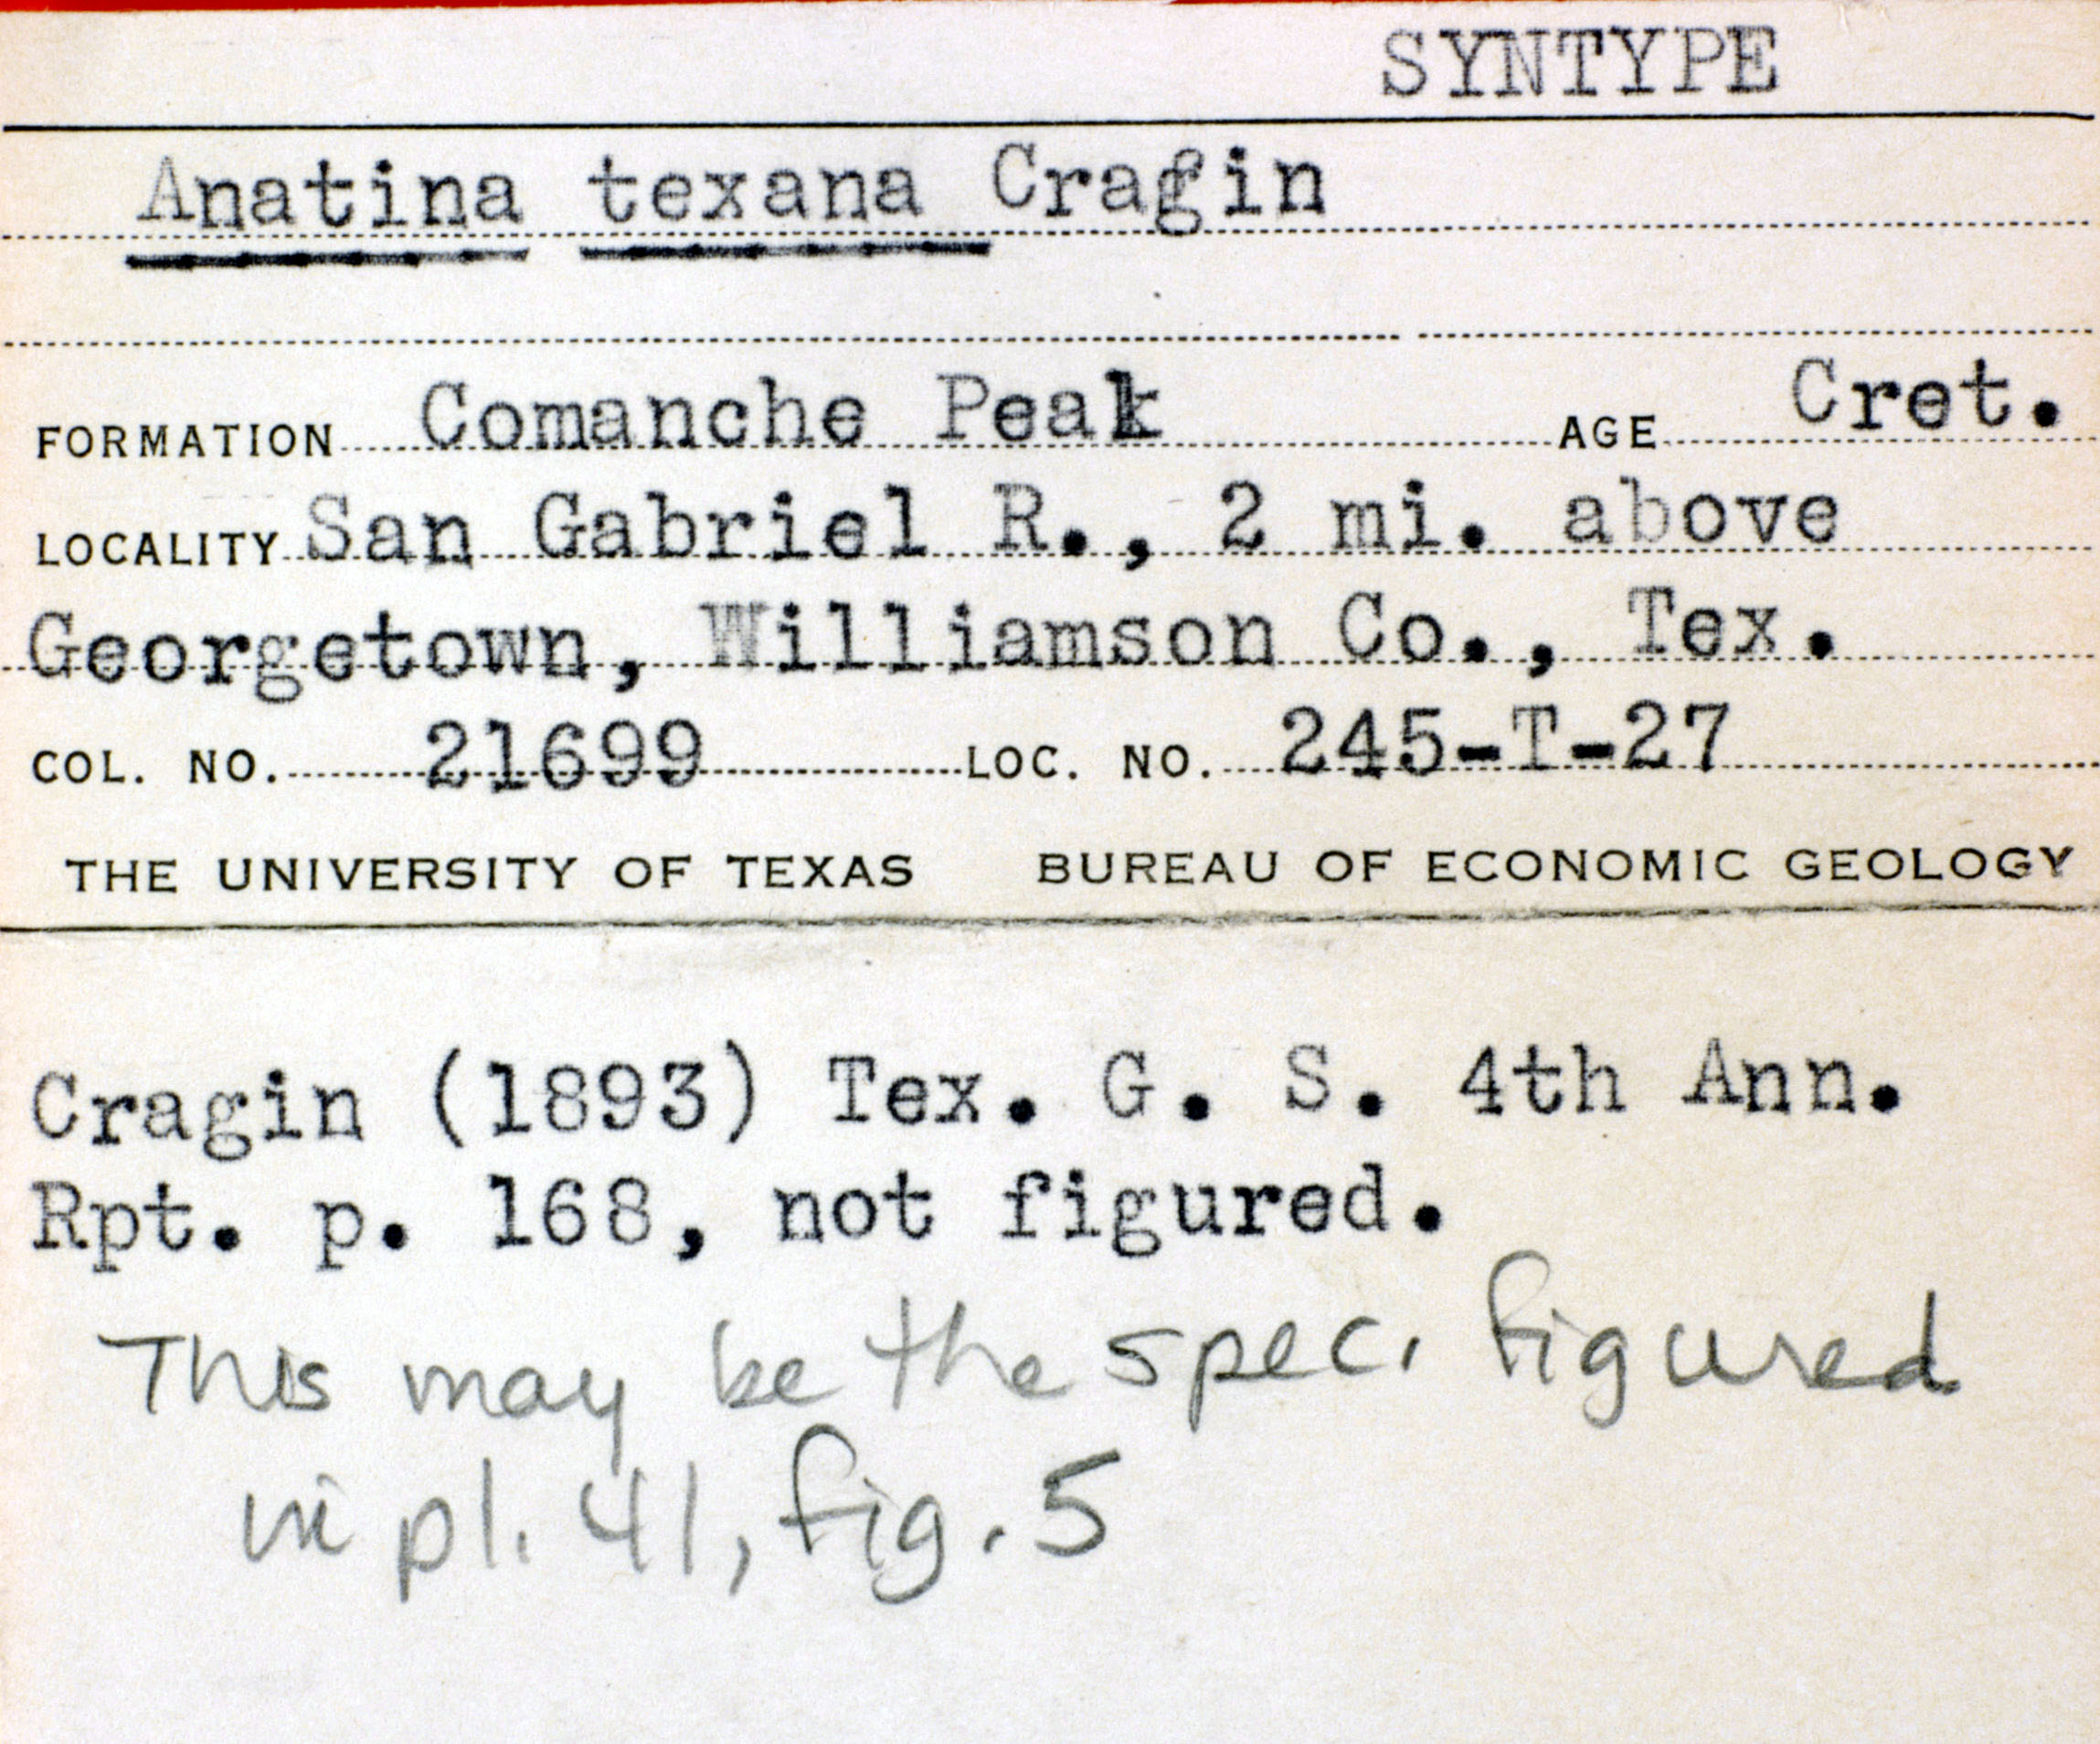 SYNTYPE
Anatina texana Cragin
FORMATION Comanche Peak AGE Cret.
LOCALITY San Gabriel R., 2 mi. above
Georgetown, Williamson Co., Tex.
COL. NO. 21699 LOC. NO. 245-T-27
THE UNIVERSITY OF TEXAS BUREAU OF ECONOMIC GEOLOGY
Cragin (1893) Tex. G. S. 4th Ann.
Rpt. p. 168, not figured.
This may be the spec. figured
in pl. 41, fig. 5